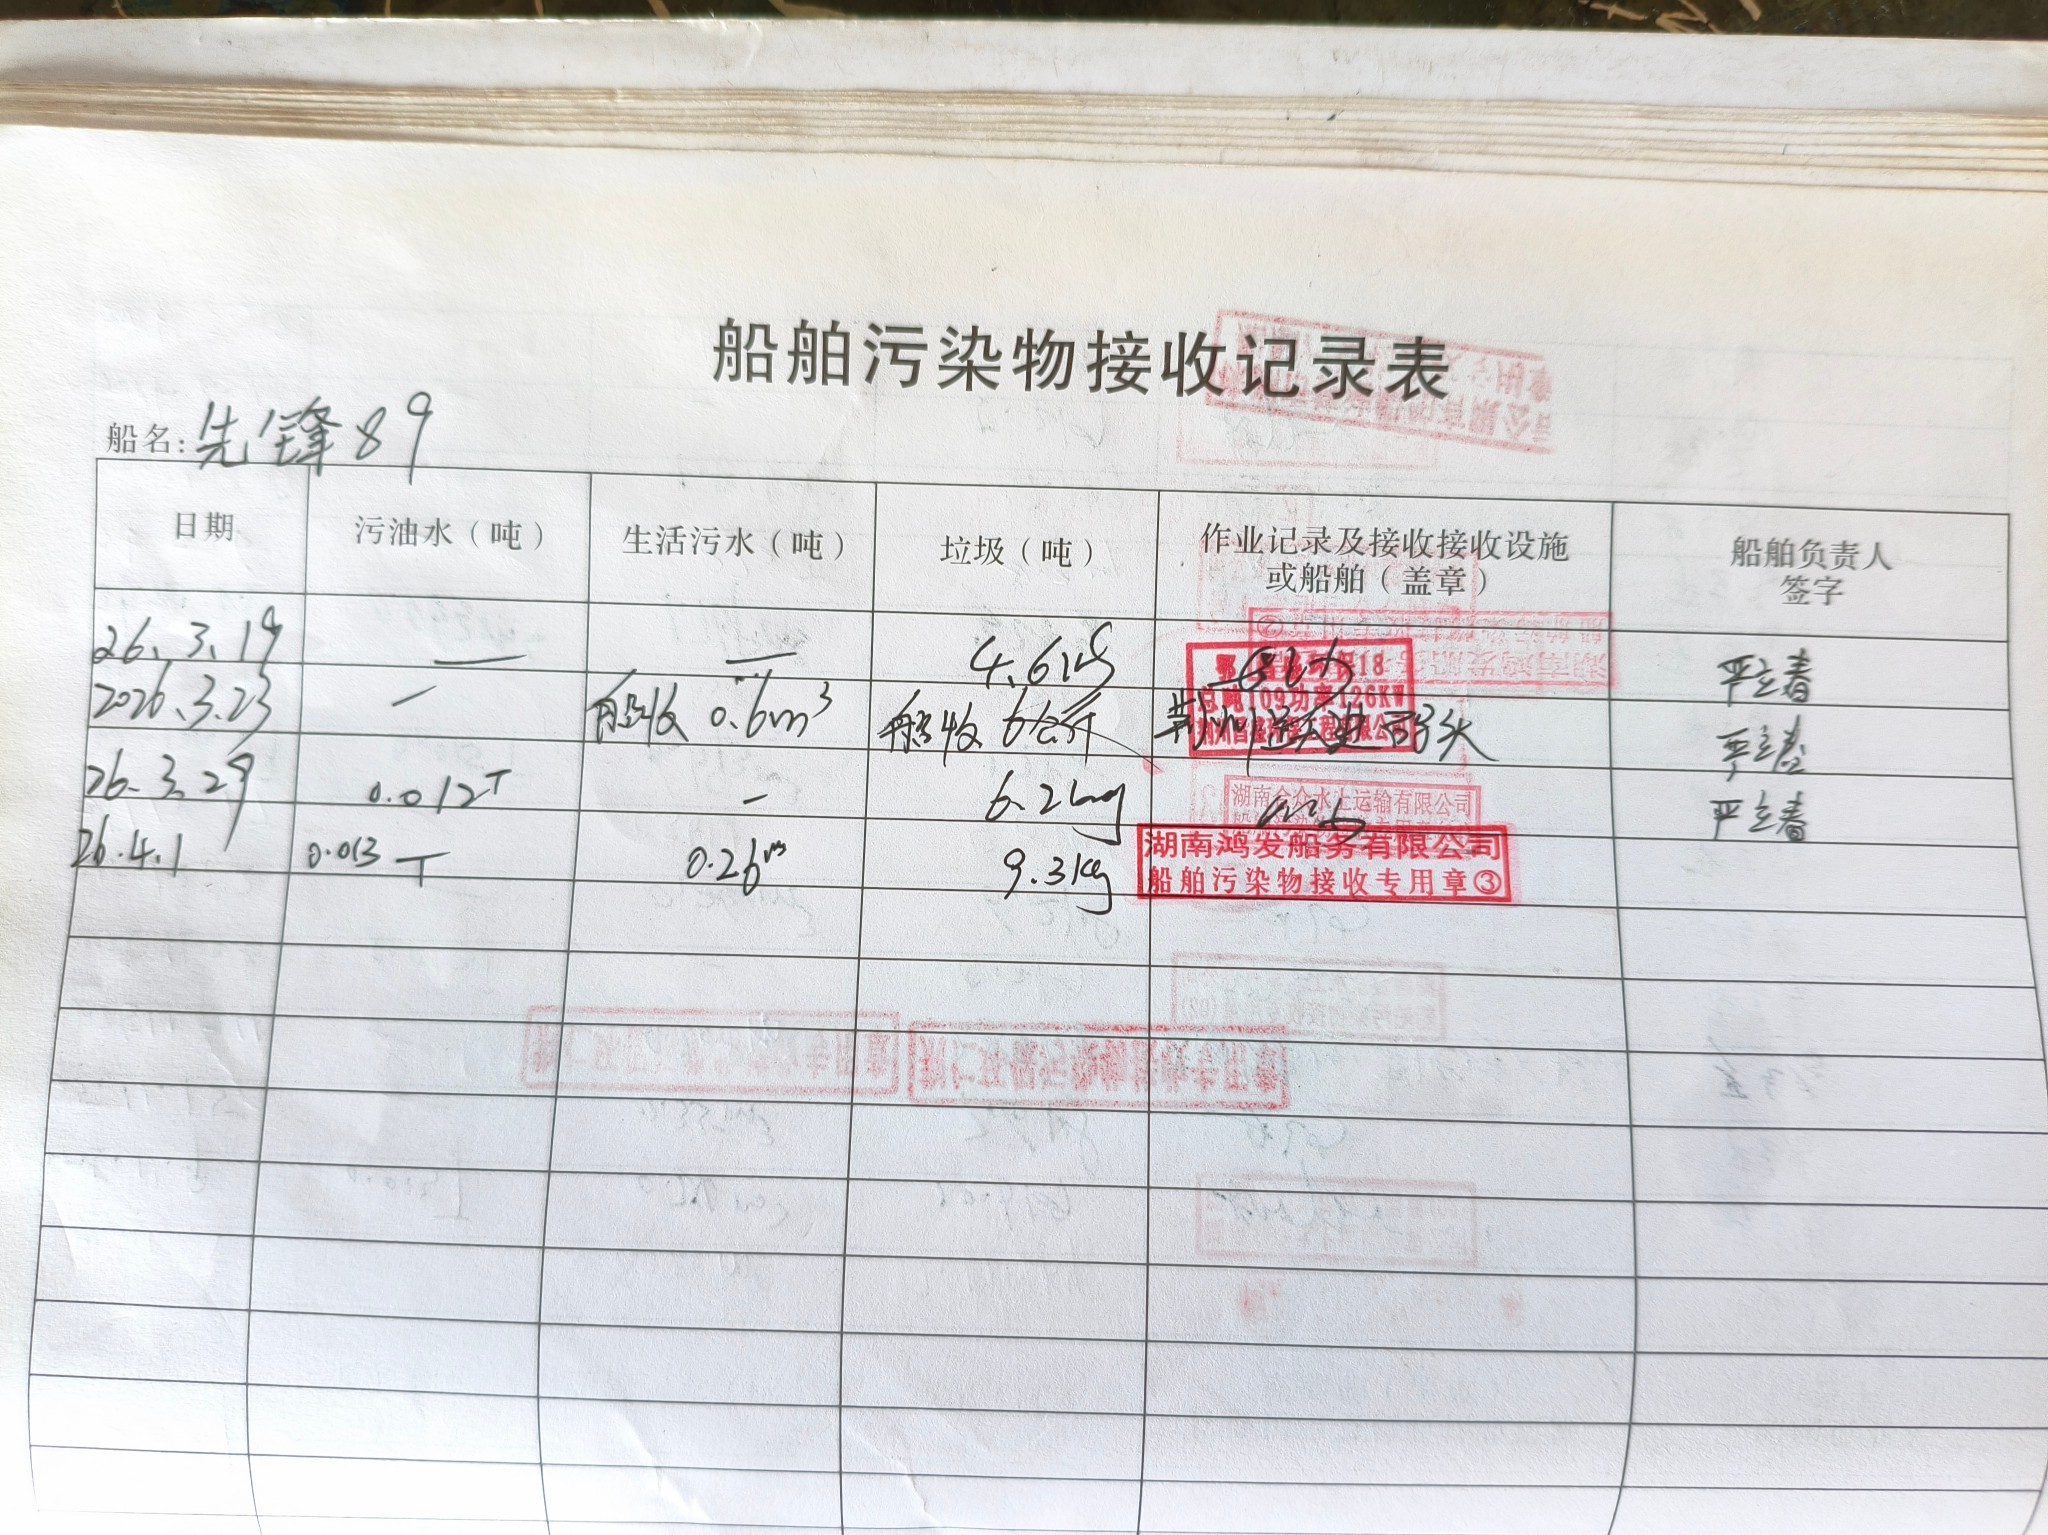 船舶污染物接收记录表
船名: 先锋89
日期 污油水（吨） 生活污水（吨） 垃圾（吨） 作业记录及接收接收设施或船舶（盖章） 船舶负责人签字
26.3.19 — — 4.6kg 严立春
总吨109功率126KW
2026.3.23 — 船收 0.6m³ 船收 6公斤 荆州 码头 严立春
26.3.29 0.012T — 6.2kg 湖南众众水上运输有限公司 严立春
26.4.1 0.013T 0.26m³ 9.3kg 湖南鸿发船务有限公司
船舶污染物接收专用章③